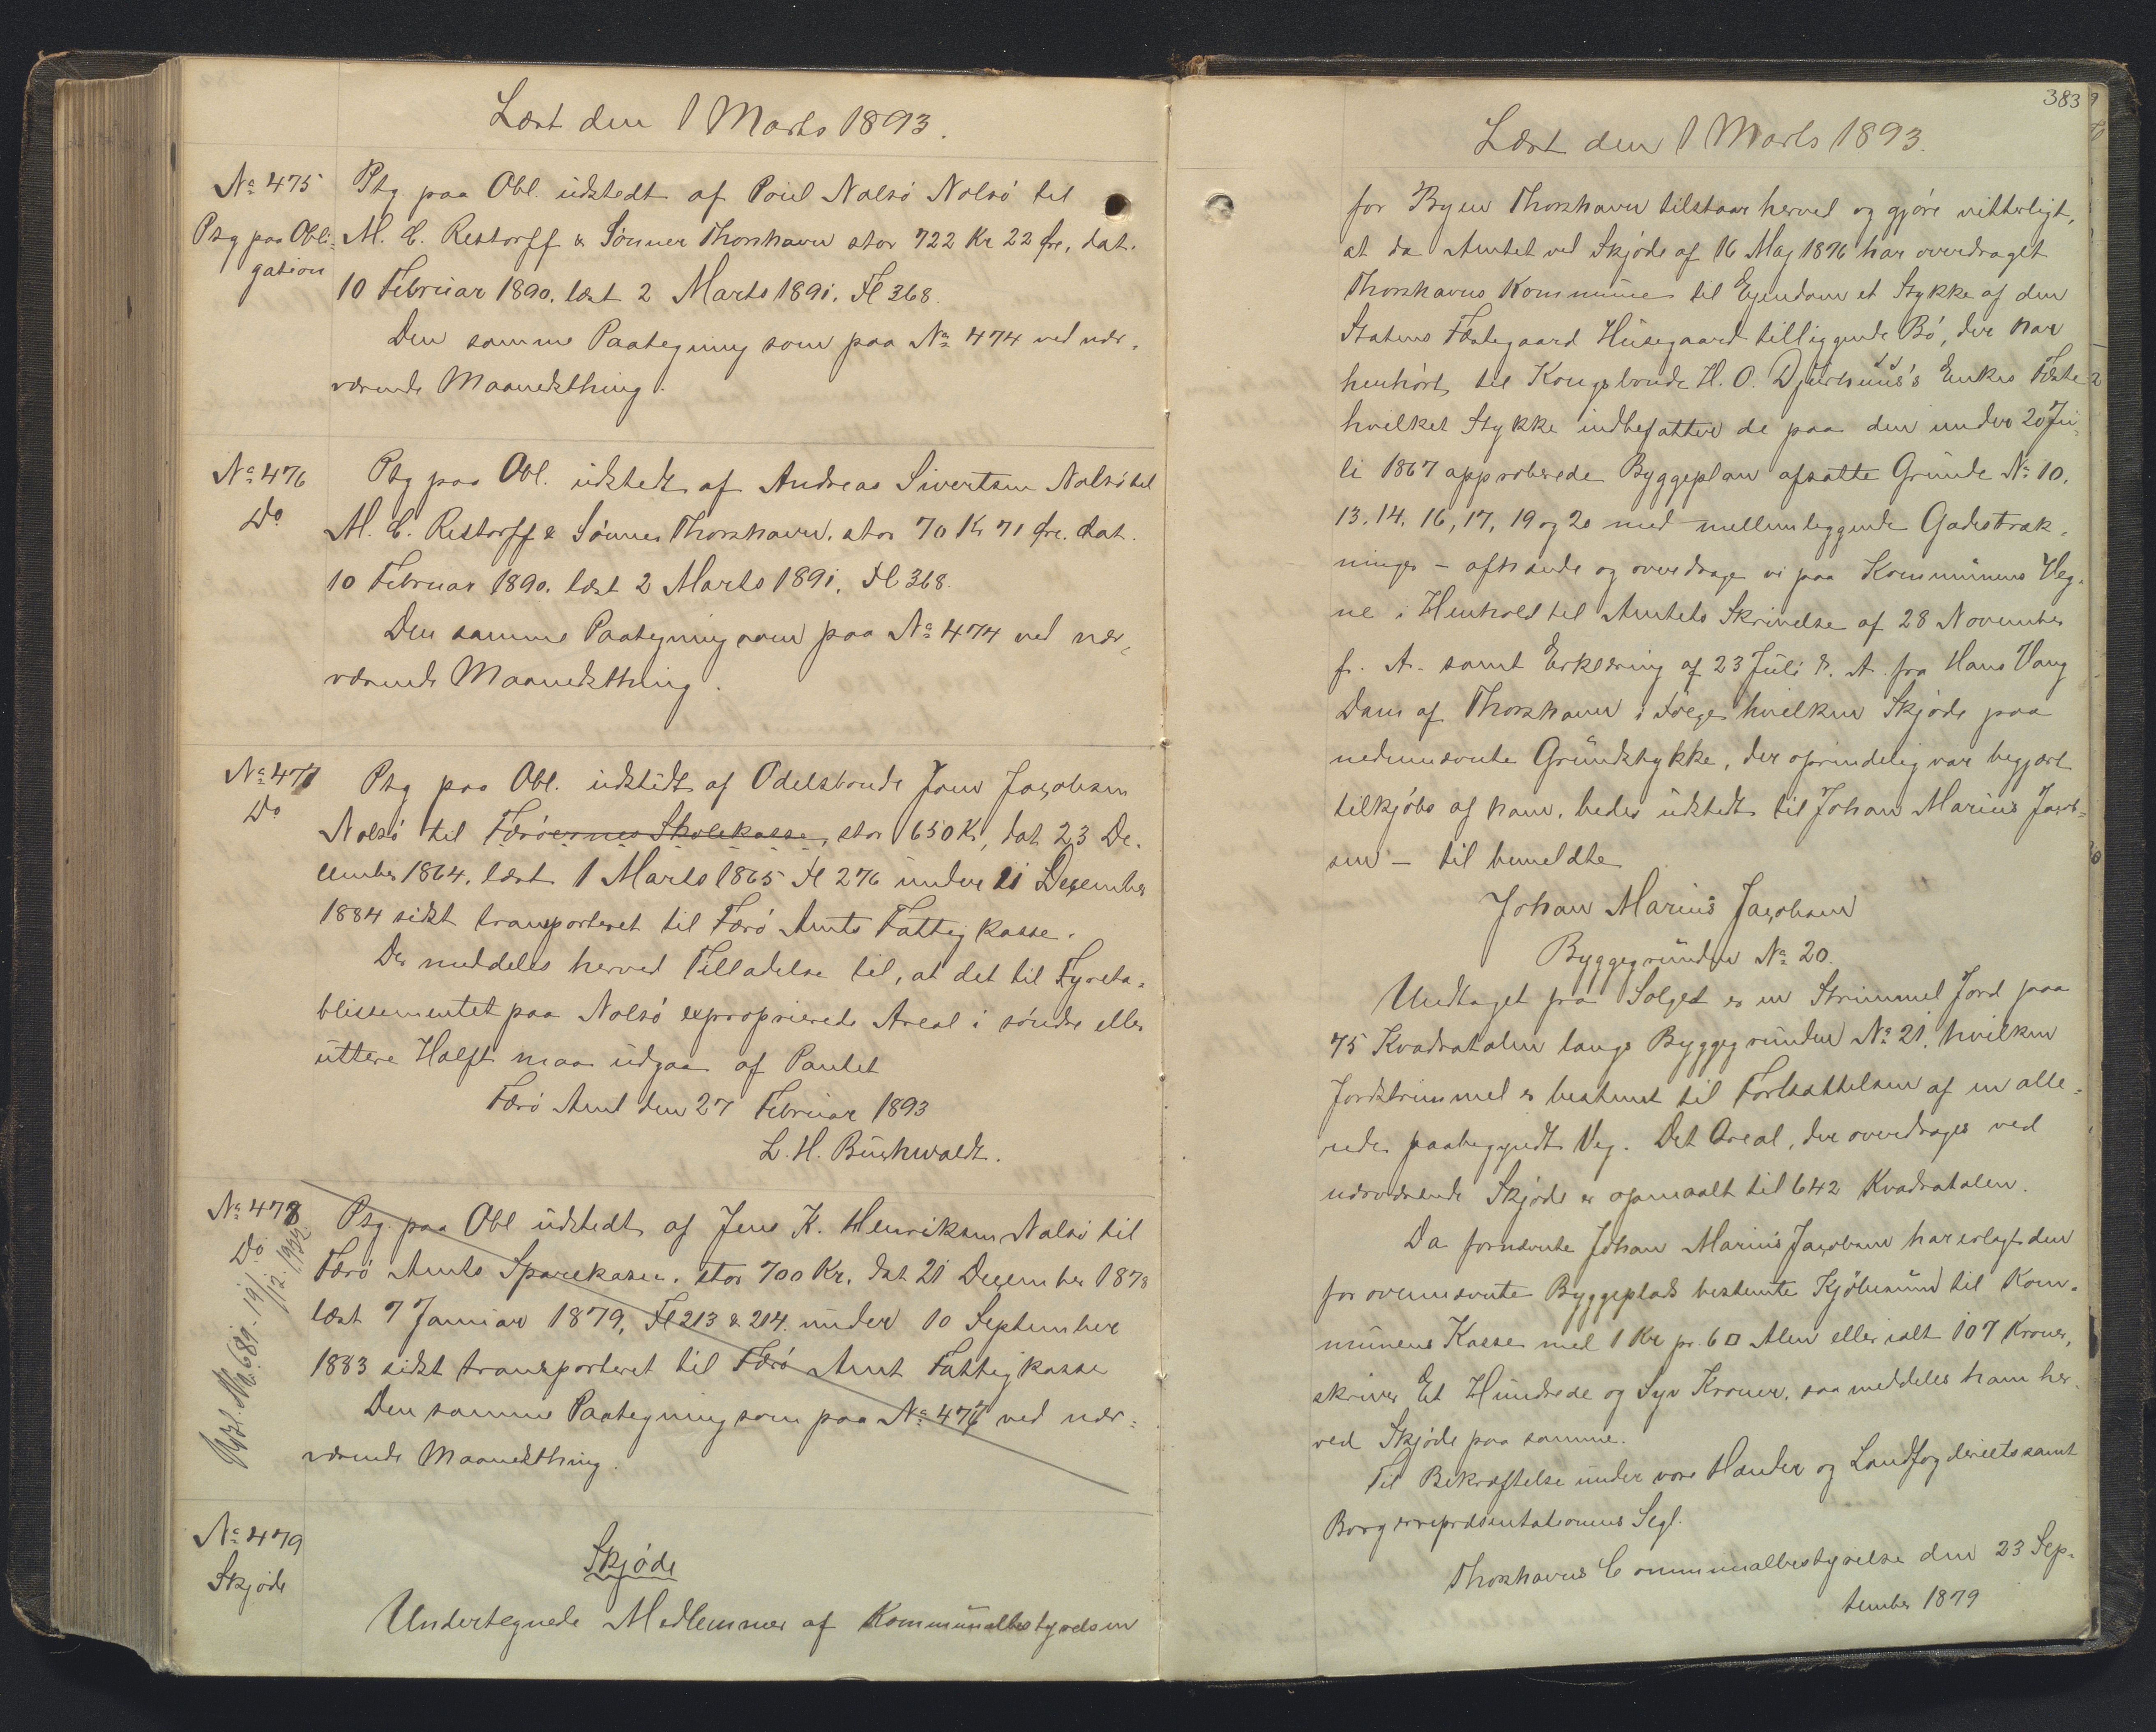 Læst den 1 Marts 1893.
No 475
Ptg paa Obli-
gation
Ptg paa Obl. udstedt af Poul Nolsö Nolsö til
M. C. Restorff & Sönner Thorshavn stor 722 Kr 22 Øre, dat.
10 Februar 1890, læst 2 Marts 1891. Fl 368.
Den samme Paategning som paa No 474 ved nær-
værende Maanedsthing.
No 476
Do
Ptg paa Obl. udstedt af Andreas Sivertsen Nolsö til
M. C. Restorff & Sönner Thorshavn, stor 70 Kr 71 Øre. dat.
10 Februar 1890. læst 2 Marts 1891. Fl 368.
Den samme Paategning som paa No 474 ved nær-
værende Maanedsthing.
No 477
Do
Ptg paa Obl. udstedt af Odelsbonde Joen Jacobsen
Nolsö til Færöernes Skolekasse, stor 650 Kr, dat 23 De-
cember 1864. læst 1 Marts 1865 Fl 276 under 21 December
1884 sidst transporteret til Færö Amts Fattigkasse.
Der meddeles herved Tilladelse til, at det til Fyreta-
blissementet paa Nolsö exproprierede Areal i söndre eller
uttere Halft maa udgaa af Pantet
Færö Amt den 27 Februar 1893
L. H. Buchwaldt.
No 478
Do
Udsl. No. 689. 19/12 1932.
Ptg. paa Obl udstedt af Jens K. Henriksen Nolsö til
Færö Amts Sparekasse. stor 700 Kr. dat 21 December 1878
læst 7 Januar 1879, Fl 213 & 214. under 10 September
1883 sidst transporteret til Færö Amt Fattigkasse
Den samme Paategning som paa No 477 ved nær-
værende Maanedsthing.
No 479
Skjöde
Skjöde
Undertegnede Medlemmer af Kommunalbestyrelsen
383
Læst den 1 Marts 1893.
for Byen Thorshavn tilstaar herved og gjöre vitterligt,
at da Amtet ved Skjöde af 16 Maj 1876 har overdraget
Thorshavns Kommune til Ejendom et Stykke af den
Statens Fæstegaard Husegaard tilliggende Bö, der har
henhört til Kongsbonde H. O. Djurhuus's Enkes Fæste
hvilket Stykke indbefatter de paa den under 20 Ju-
li 1867 approberede Byggeplan afsatte Grunde No 10,
13. 14. 16, 17, 19 og 20 med mellemliggende Gadestræk-
ninger - afhænde og overdrage vi paa Kommunens Veg-
ne i Henhold til Amtets Skrivelse af 28 November
f. A. samt Erklæring af 23 Juli d. A. fra Hans Vang
Dam af Thorshavn i Fölge hvilken Skjöde paa
nedennævnte Grundstykke, der oprindelig var begjært
tilkjöbs af ham, bedes udstedt til Johan Marius Jacob-
sen - til bemeldte
Johan Marius Jacobsen
Byggegrunden No 20.
Undtaget fra Salget er en Strimmel Jord paa
75 Kvadratalen langs Byggegrunden No 21, hvilken
Jordstrimmel er bestemt til Fortsættelsen af en alle-
rede paabegyndt Vej. Det Areal, der overdrages ved
nærværende Skjöde er opmaalt til 642 Kvadratalen.
Da fornævnte Johan Marius Jacobsen har erlagt den
for ovennævnte Byggeplads bestemte Kjöbesum til Kom-
munens Kasse med 1 Kr pr. 6 □ Alen eller ialt 107 Kroner,
skriver Et Hundrede og Syv Kroner, saa meddeles ham her-
ved Skjöde paa samme.
Til Bekræftelse under vore Hænder og Landfogderiets samt
Borgerrepræsentationens Segl.
Thorshavns Communalbestyrelse den 23 Sep-
tember 1879